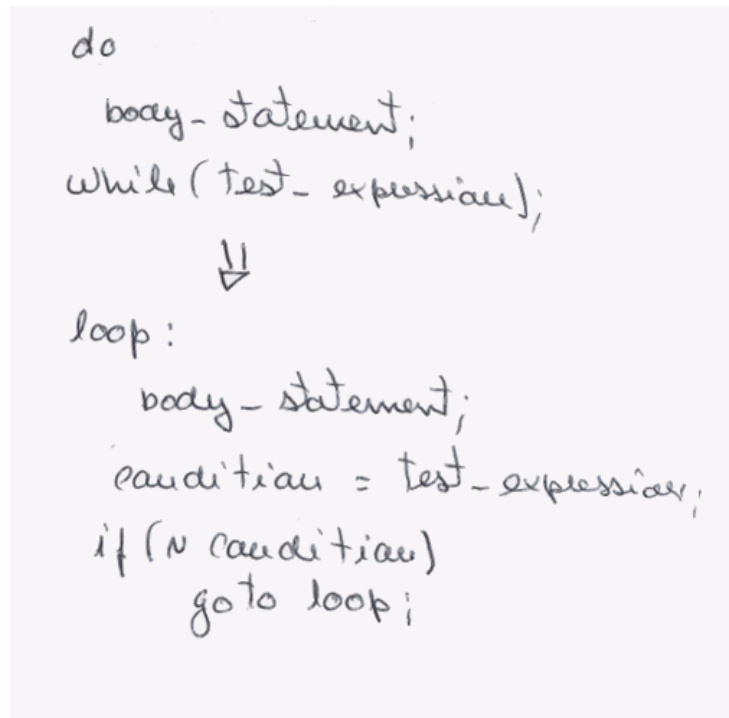 do
body-statement;
while(test_expression);
loop:
body-statement;
condition = test_expression;
if (~ condition)
goto loop;